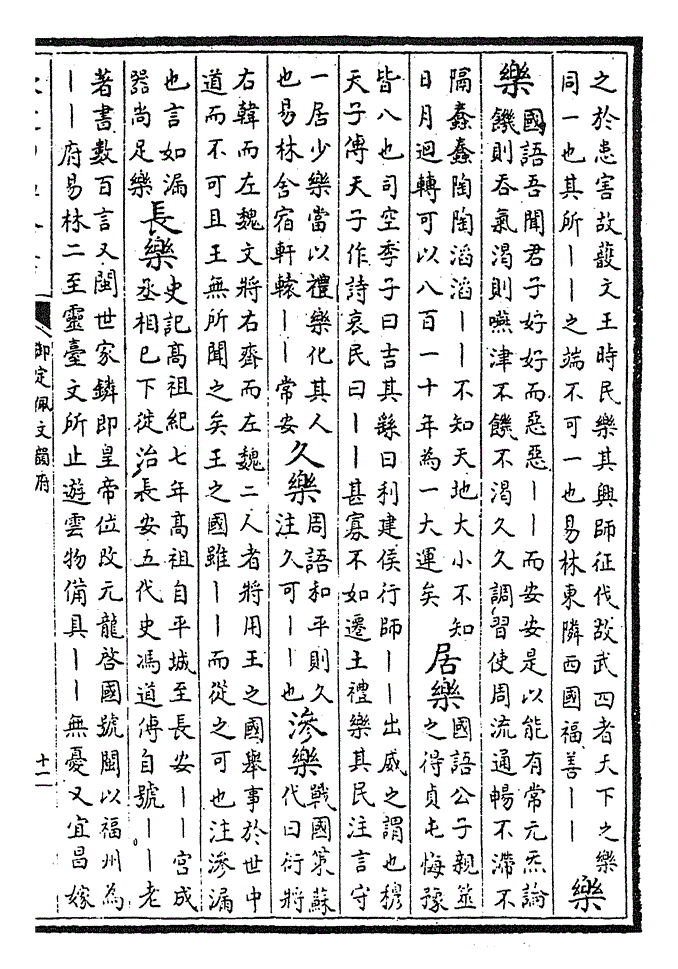 之於患害故頀文王時民樂其興師征伐故武四者天下之樂
同一也其所丨丨之端不可一也易林東隣西國福善丨丨
樂
樂
國語吾聞君子好好而惡惡丨丨而安安是以能有常元炁論
饑則吞氣渴則嚥津不饑不渴久久調習使周流通暢不滯不
隔蠢蠢陶陶滔滔丨丨不知天地大小不知
日月迴轉可以八百一十年為一大運矣
居樂
國語公子親筮
之得貞屯悔豫
皆八也司空季子曰吉其繇曰利建侯行師丨丨出威之謂也穆
天子傳天子作詩哀民曰丨丨甚寡不如遷土禮樂其民注言守
一居少樂當以禮樂化其人
也易林舍宿軒轅丨丨常安
久樂
周語和平則久
注久可丨丨也
滲樂
戰國策蘇
代曰衍將
右韓而左魏文將右齊而左魏二人者將用王之國舉事於世中
道而不可且王無所聞之矣王之國雖丨丨而從之可也注滲漏
也言如漏
器尚足樂
長樂
史記高祖紀七年高祖自平城至長安丨丨宮成
丞相已下徙治長安五代史馮道傳自號丨丨老
著書數百言又閩世家鏻即皇帝位改元龍啓國號閩以福州為
丨丨府易林二至靈臺文所止遊雲物備具丨丨無憂又宜昌嫁
御定佩文韻府
十二